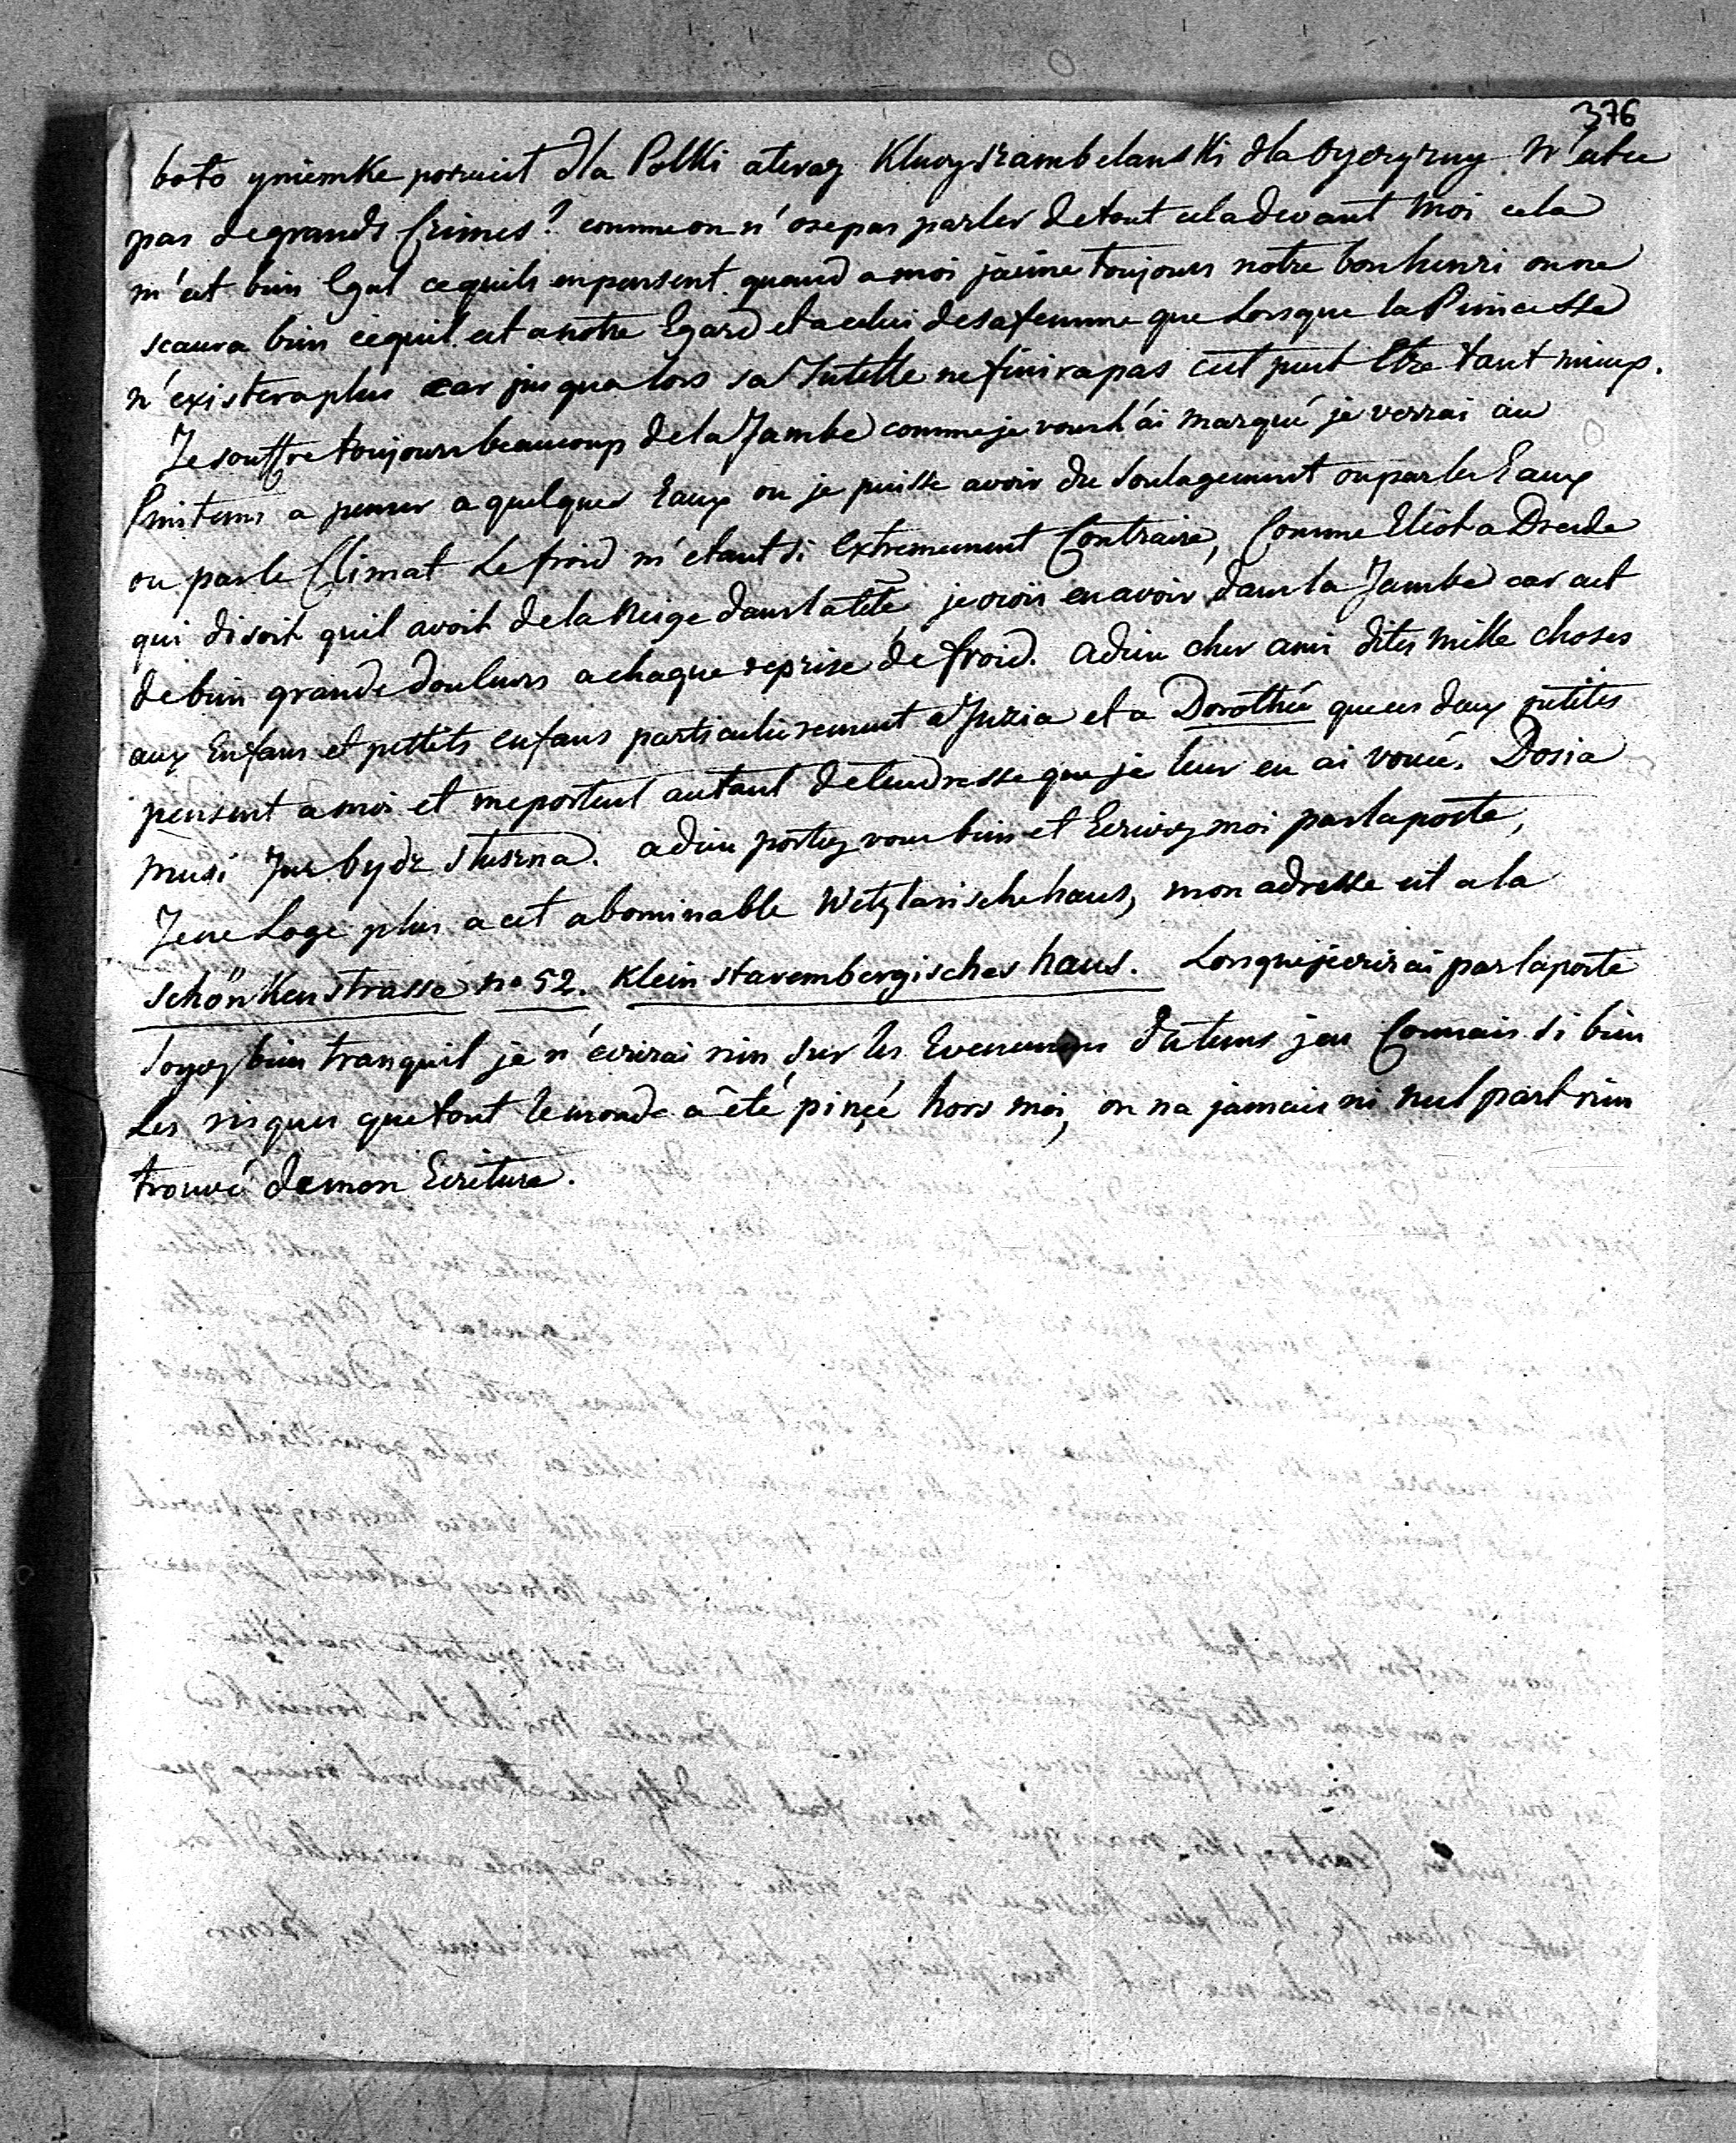 376
boto yniemke porucit dla Polki ateraz Kluczszambelanski dla oyczyzny N'est ce
pas degrands Crimes? comme on n'osepas parler detout cela devant Moi cela
m'est bien Egal cequils enpensent. quand a moi j'aime toujours notre bon henri on ne
scaura bien cequil est anotre Egard et acelui desafemme que Lorsque la Princesse
n'existera plus car jusqualors sa Tutelle ne finirapas c'est peut Etre tant mieux.
Je souffre toujours beaucoup dela Jambe comme je vous l'ai marqué je verrai au
Printems a penser a quelques Eaux ou je puisse avoir du Soulagement ou par les Eaux
ou par le Climat Le froid m'etant si Extremement Contraire, Comme Eliot a Dresde
qui disoit quil avoit dela Neige dans la tête, je crois en avoir dans la Jambe car cest
de bien grande douleurs a chaque reprise de froid. adieu cher ami dites Mille choses
aux Enfans et pettits enfans particulierement a Juzia et a Dorothée que ces deux petites
pensent a moi et me portent autant de tendresse que je leur en ai vouée. Dosia
musi Juz bydz sluszna. adieu portez vous bien et Ecrivez moi par la poste,
Je ne Loge plus a cet abominable Wetzlarische haus, mon adresse est a la
Schönkenstrasse no 52. Klein starembergisches haus. Lorsque j'ecrirai par la poste
Soyez bien tranquil je n'ecrirai rien sur les Evenemens du tems j'en Connais si bien
Les risques que tout le monde a été pinçé hors moi, on na jamais ni nul part rien
trouvé demon Ecriture.